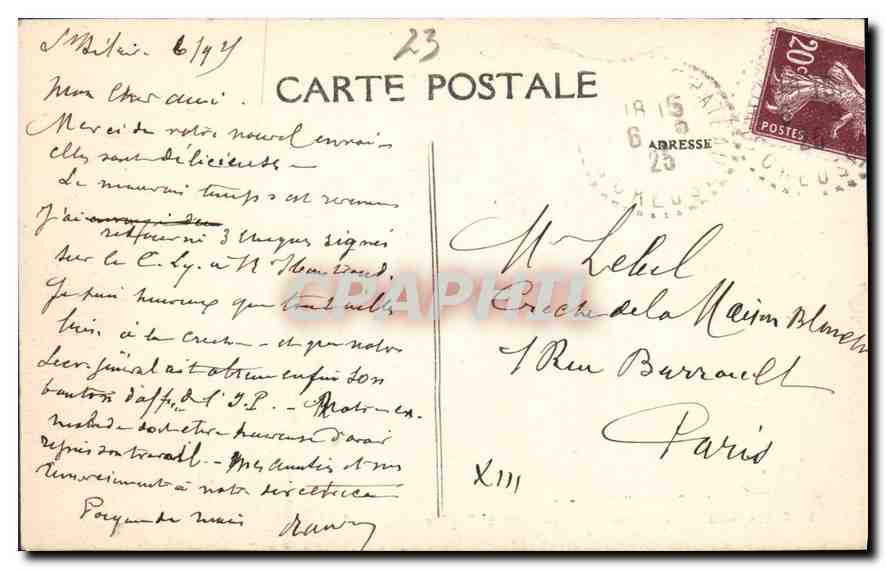 6/9 25
23
CARTE POSTALE
20c
POSTES
18 15
6 9
25
CREUSE
ADRESSE
Mon Cher ami.
Merci de votre nouvel envoi
elles sont délicieuses
Le mauvais temps est revenu
J'ai
retourné 3 chèques signés
sur le C. Ly. à Mr
Je suis heureux que tout aille
bien à la Creche - et que notre
Secr général ait obtenu enfin son
d'aff. de l'I.P. - Notre ex-
malade doit être heureuse d'avoir
repris son travail - Mes amitiés et mes
remerciements à notre directrice
Poignée de main
Mr Lebel
Creche de la Maison Blanche
1 Rue Barrault
Paris
XIII
CPAPHIL